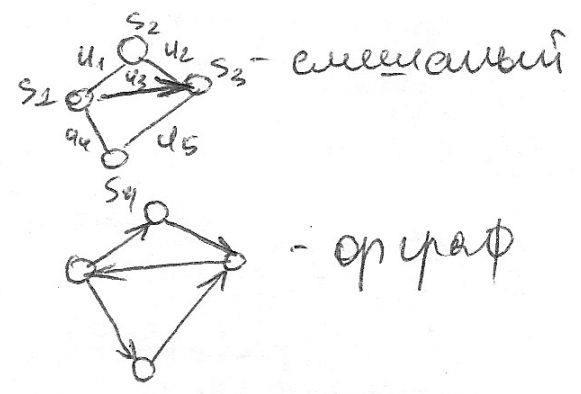 S2
U1 U2
S1 U3 S3 - смешаный
U4 U5
S4
- орграф